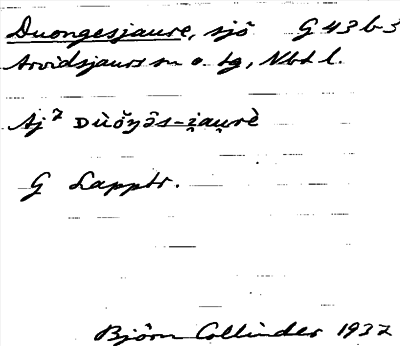 Duongesjaure, sjö G 43 b 3
Arvidsjaurs sn o. tg, Nbt l.
Aj² Dùŏŋə̑s-i̯au̯rè
G Lapptr.
Björn Collinder 1937